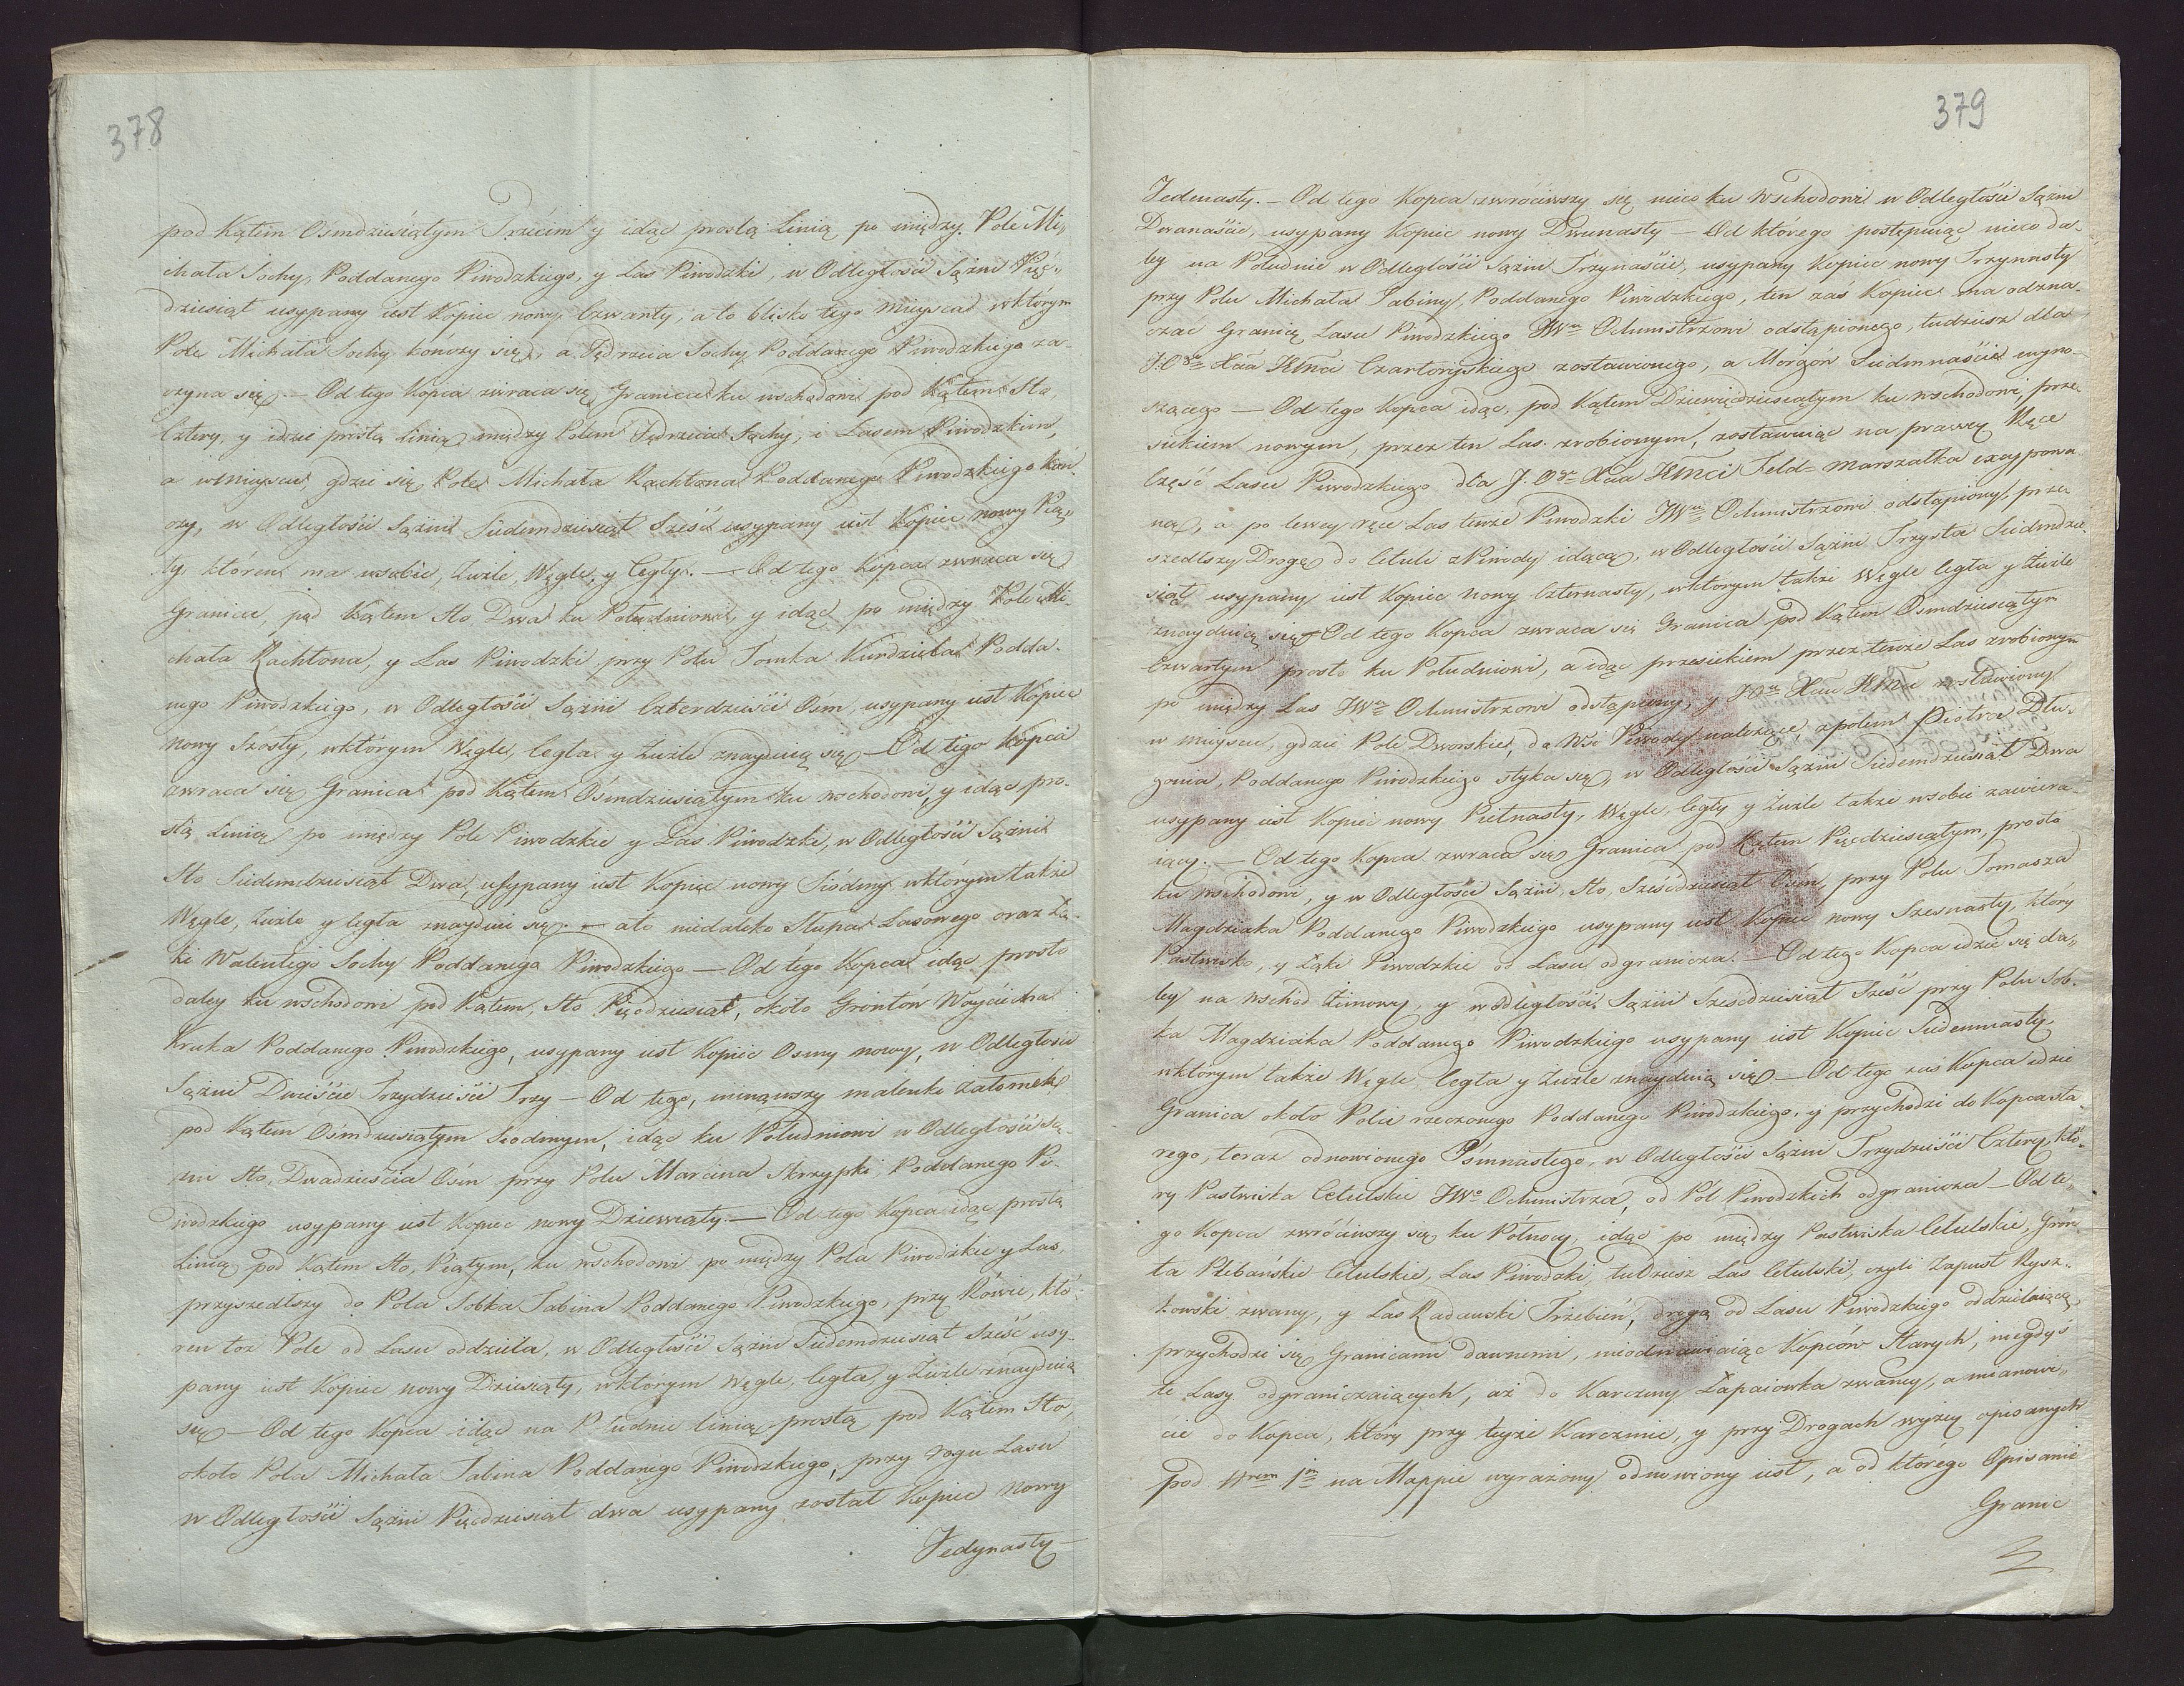 378
pod Kątem Ośmdziesiątym Trzecim y idąc prostą Linią po między Pole Mi„
chała Sochy, Poddanego Piwodzkiego, y Las Piwodzki, w Odległości Sążni Pięć„
dziesiąt usypany iest Kopiec nowy Czwarty, a to blisko tego mieysca, w którym
Pole Michała Sochy kończy się, a Jędrzeia Sochy Poddanego Piwodzkiego za-
czyna się. — Od tego Kopca zwraca się Granica ku wschodowi pod Kątem Sto,
Cztery, y idzie prostą linią między Polem Jędrzeia Sochy, i Lasem Piwodzkim,
a wmieyscu, gdzie się Pole Michała Rachtona Poddanego Piwodzkiego koń-
czy, w Odległości Sążni Siedemdziesiąt Sześć usypany iest Kopiec nowy Pią-
ty, któren ma wsobie, Żużle, Węgle, y Cegły. — Od tego Kopca zwraca się
Granica, pod Kątem Sto Dwa ku Południowi, y idąc po między Pole Mi-
chała Rachtona, y Las Piwodzki przy Polu Tomka Kurdziela Podda-
nego Piwodzkiego, w Odległości Sążni Czterdzieści Ośm, usypany iest Kopiec
nowy Szósty, wktórym Węgle, Cegła y Żużle znayduią się — Od tego Kopca
zwraca się Granica pod Kątem Ośmdziesiątym ku wschodowi, y idąc pro-
stą Linią po między Pole Piwodzkie y Las Piwodzki, w Odległości Sążni
Sto Siedemdziesiąt Dwa, usypany iest Kopiec nowy Siódmy wktórym także
Węgle, Żużle y Cegła znayduie się. — a to niedaleko Słupa Lasowego oraz Łą-
ki Walentego Sochy Poddanego Piwodzkiego — Od tego Kopca idąc prosto
daley ku wschodowi pod Kątem, Sto Pięcdziesiąt, około Grontów Woyciecha
Kruka Poddanego Piwodzkiego, usypany iest Kopiec Osmy nowy, w Odległości
Sążni Dwieście Trzydzieści Trzy — Od tego, minąwszy malenki Załomek,
pod Kątem Ośmdziesiątym Siodmym, idąc ku Południowi w Odległości Są-
żni Sto, Dwadzieścia Ośm przy Polu Marcina Skrzypki, Poddanego Pi-
wodzkiego usypany iest Kopiec nowy Dziewiąty. — Od tego Kopca idąc prostą
Linią pod Kątem Sto, Piątym, ku wschodowi po między Pola Piwodzkie y Las,
przyszedłszy do Pola Sobka Tabina Poddanego Piwodzkiego, przy Rówie, któ-
ren toż Pole od Lasu oddziela, w Odległości Sążni Siedemdziesiąt Sześć usy-
pany iest Kopiec nowy Dziesiąty, wktorym Węgle, Cegła, y Żużle znayduią
się — Od tego Kopca idąc na Południe linią prostą, pod Kątem Sto,
około Pola Michała Tabina Poddanego Piwodzkiego, przy rogu Lasu
w Odległości Sążni Pięcdziesiąt dwa usypany został Kopiec Nowy
Jedynasty
379
Jedenasty. — Od tego Kopca zwróciwszy się nieco ku Wschodowi w Odległości Sążni
Dwanaście, usypany Kopiec nowy Dwunasty — Od którego postępuiąc nieco da-
ley na Południe w Odległości Sążni Trzynaście, usypany Kopiec nowy Trzynasty
przy Polu Michała Tabiny, Poddanego Piwodzkiego, ten zaś Kopiec ma odzna-
czać Granicę Lasu Piwodzkiego JWu Ochmistrzowi odstąpionego, tudziesz dla
J.O. Xcia JMci Czartoryjskiego zostawionego, a Morgów Siedmnaście wyno-
szącego — Od tego Kopca idąc, pod Kątem Dziewięcdziesiątym ku wschodowi, prze-
siekiem nowym, przez ten Las zrobionym, zostawuiąc na prawey Ręce
Część Lasu Piwodzkiego dla J. O. Xcia JMci Feld-marszałka excypowa
ną, a po lewey ręce Las tenże Piwodzki JWu Ochmistrzowi odstąpiony, prze-
szedłszy Drogę do Cetuli z Piwody idącą, w Odległości Sążni Trzysta Siedmdzie-
siąt usypany iest Kopiec nowy Czternasty, wktorym także Węgle Cegła y Żużle
znayduią się — Od tego Kopca zwraca się Granica pod Kątem Osmdziesiątym
Czwartym prosto ku Południowi, a idąc przesiekiem przez tenże Las zrobionym
po między Las JWu Ochmistrzowi odstąpiony, y J.O. Xciu JMci zostawiony
w mieyscu, gdzie Pole Dworskie, do Wsi Piwody należące, z polem Piotra Dłu-
gonia, Poddanego Piwodzkiego styka się, w Odległości Sążni Siedemdziesiąt Dwa
usypany iest Kopiec nowy Pietnasty, Węgle, Cegły y Żużle także wsobie zawiera-
iący. — Od tego Kopca zwraca się Granica pod Kątem Pięcdziesiątym, prosto
ku wschodowi, y w Odległości Sążni, Sto, Sześćdziesiąt Ośm, przy Polu Tomasza
Magdziaka Poddanego Piwodzkiego usypany iest Kopiec nowy Szesnasty, który
Pastwisko, y Łąki Piwodzkie od Lasu odgranicza. — Od tego Kopca idzie się da„
ley na wschod Zimowy, y w Odległości Sążni Sześćdziesiąt Sześć przy Polu Sob-
ka Magdziaka Poddanego Piwodzkiego usypany iest Kopiec Siedemnasty,
wktorym także Węgle, Cegła y Żużle znayduią się — Od tego zaś Kopca idzie
Granica około Pola rzeczonego Poddanego Piwodzkiego, y przychodzi do Kopca sta-
rego, teraz odnowionego Osmnastego, w Odległości Sążni Trzydzieści Cztery, któ-
ry Pastwiska Cetulskie JWo Ochmistrza, od Pól Piwodzkich odgranicza — Od te„
go Kopca zwróciwszy się ku Północy, idąc po między Pastwiska Cetulskie, Grón-
ta Plebańskie Cetulskie, Las Piwodzki, tudziesz Las Cetulski, czyli Zapust Rysz-
kowski zwany, y Las Radawski Trzebień, drogą od Lasu Piwodzkiego oddzielaiącą,
przychodzi się Granicami dawnemi, nieodnawiaiąc Kopców Starych, niegdyś
te Lasy odgraniczaiących, aż do Karczmy Łapaiowka zwaney, a mianowi„
cie do Kopca, który przy teyże Karczmie, y przy Drogach wyżey opisanych
pod Nrem 1m na Mappie wyrażony odnowiony iest, a od którego Opisanie
Granic